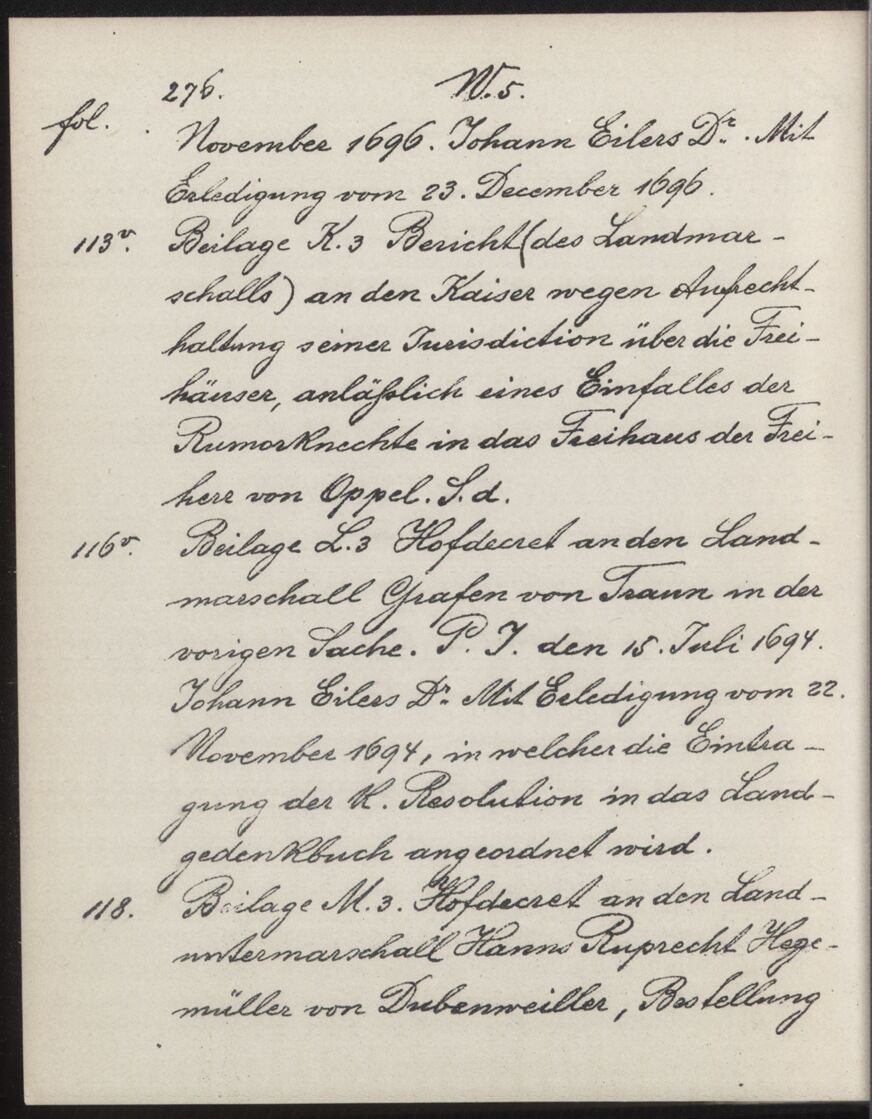 276. W. 5.
fol.
November 1696. Johann Eilers Dr. Mit
Erledigung vom 23. December 1696.
113v. Beilage K. 3 Bericht (des Landmar-
schalls) an den Kaiser wegen Aufrecht-
haltung seiner Jurisdiction über die Frei-
häuser, anläßlich eines Einfalles der
Rumorknechte in das Freihaus der Frei-
herr von Oppel. S. d.
116v. Beilage L. 3 Hofdecret an den Land-
marschall Grafen von Traun in der
vorigen Sache. P. J. den 15. Juli 1694.
Johann Eilers Dr. Mit Erledigung vom 22.
November 1694, in welcher die Eintra-
gung der K. Resolution in das Land-
gedenkbuch angeordnet wird.
118. Beilage M. 3. Hofdecret an den Land-
untermarschall Hanns Ruprecht Hege-
müller von Dubenweiller, Bestellung